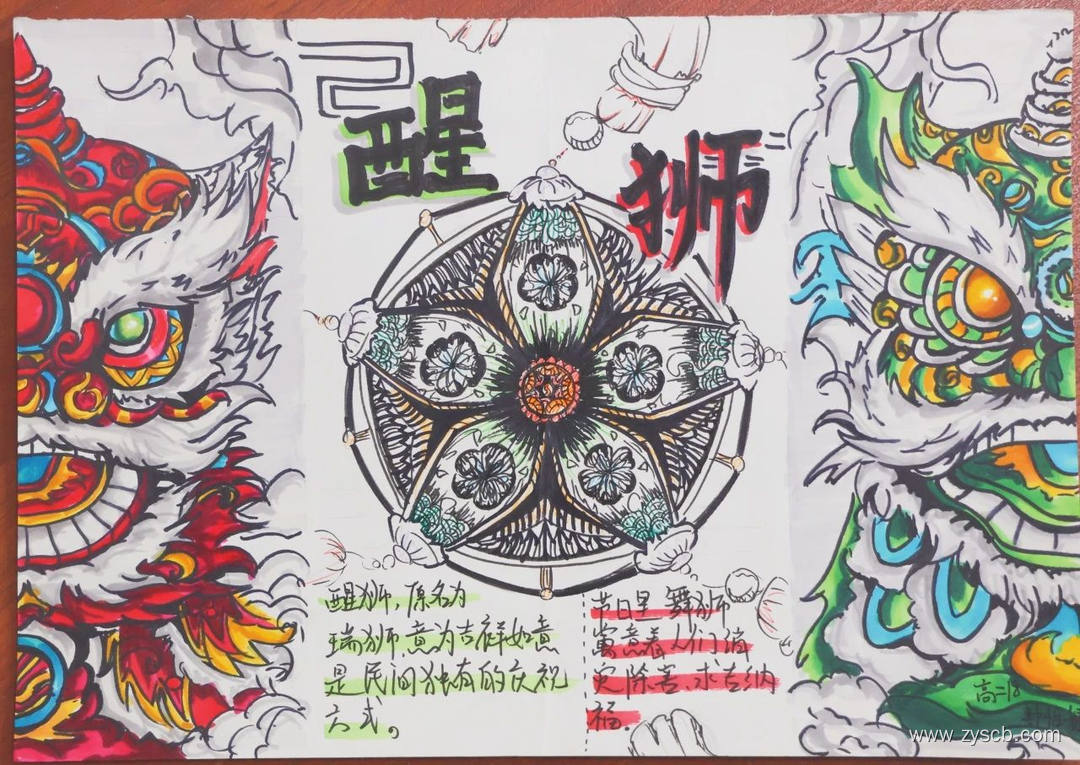 醒狮
醒狮，原名为
瑞狮，意为吉祥如意
是民间独有的庆祝
方式。
节日里 舞狮
寓意着人们消
灾除害、求吉纳
福。
高二18
www.zyscb.com